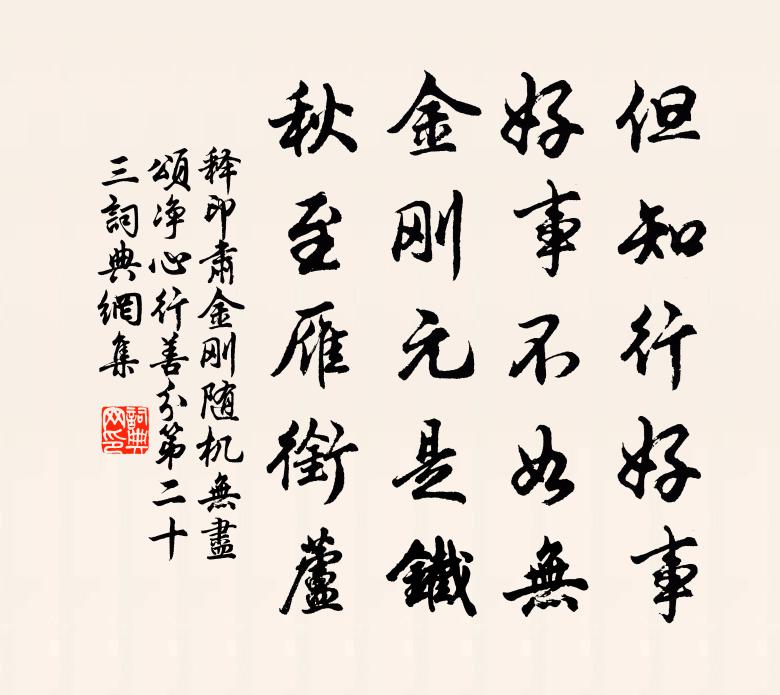 但知行好事
好事不如無
金刚元是鐵
秋至雁銜蘆
释印肃金刚随机無盡
頌净心行善分第二十
三詞典網集
詞典
网印